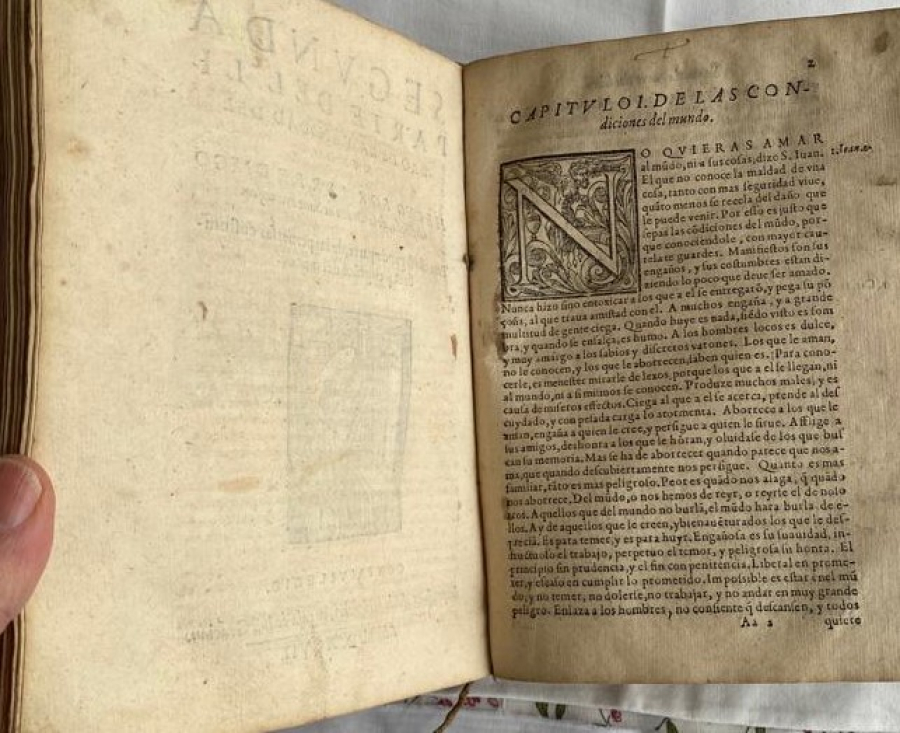 2
CAPITVLO I. DE LAS CON-
diciones del mundo.
NO QVIERAS AMAR
al mũdo, ni a sus cosas, dize S. Iuan.
1. Ioan. 2.
El que no conoce la maldad de vna
cosa, tanto con mas seguridad viue,
quãto menos se recela del daño que
le puede venir. Por esso es justo que
sepas las cõdiciones del mũdo, por-
que conociendole, con mayor cau-
tela te guardes. Manifiestos son sus
engaños, y sus costumbres estan di-
ziendo lo poco que deue ser amado.
Nunca hizo sino entoxicar a los que a el se entregarõ, y pega su põ
çoña, al que traua amistad con el. A muchos engaña, y a grande
multitud de gente ciega. Quando huye es nada, siẽdo visto es som
bra, y quando se ensalça, es humo. A los hombres locos es dulce,
y muy amargo a los sabios y discretos varones. Los que le aman,
no le conocen, y los que le aborrecen, saben quien es. Para cono-
cerle, es menester mirarle de lexos, porque los que a el se llegan, ni
al mundo, ni a si mismos se conocen. Produze muchos males, y es
causa de miseros effectos. Ciega al que a el se acerca, prende al des
cuydado, y con pesada carga lo atormenta. Aborrece a los que le
aman, engaña a quien le cree, y persigue a quien le sirue. Afflige a
sus amigos, deshonra a los que le hõran, y oluidase de los que bus
can su memoria. Mas se ha de aborrecer quando parece que nos a-
ma, que quando descubiertamente nos persigue. Quanto es mas
familiar, tãto es mas peligroso. Peor es quãdo nos alaga, q̃ quãdo
nos aborrece. Del mũdo, o nos hemos de reyr, o reyrse el de noso
tros. Aquellos que del mundo no burlã, el mũdo hara burla de e-
llos. Ay de aquellos que le creen, y bienauẽturados los que le des-
preciã. Es para temer, y es para huyr. Engañosa es su suauidad, in-
fructuoso el trabajo, perpetuo el temor, y peligrosa su honra. El
principio sin prudencia, y el fin con penitencia. Liberal en prome-
ter, y escaso en cumplir lo prometido. Impossible es estar ẽnel mũ
do, y no temer, no dolerse, no trabajar, y no andar en muy grande
peligro. Enlaza a los hombres, no consiente q̃ descansen, y todos
Aa 2 quiere